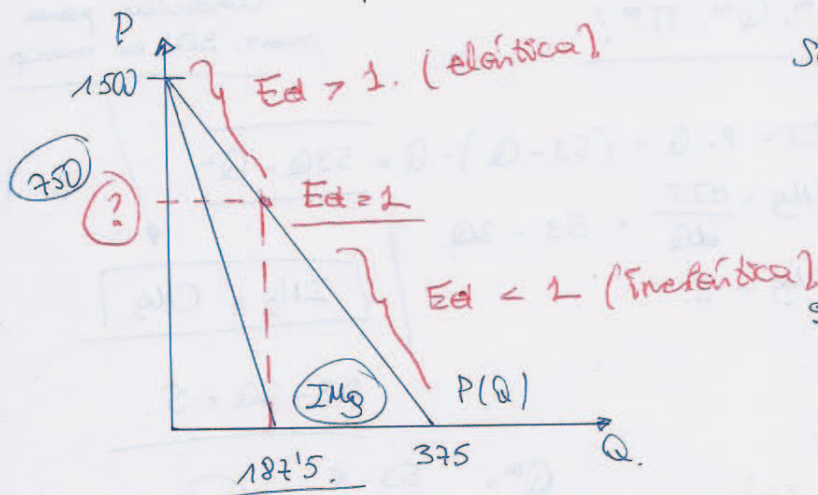 P
1500
Ed > 1. (elástica)
750
?
Ed = 1
Ed < 1 (inelástica)
IMg
P(Q)
Q.
187'5.
375